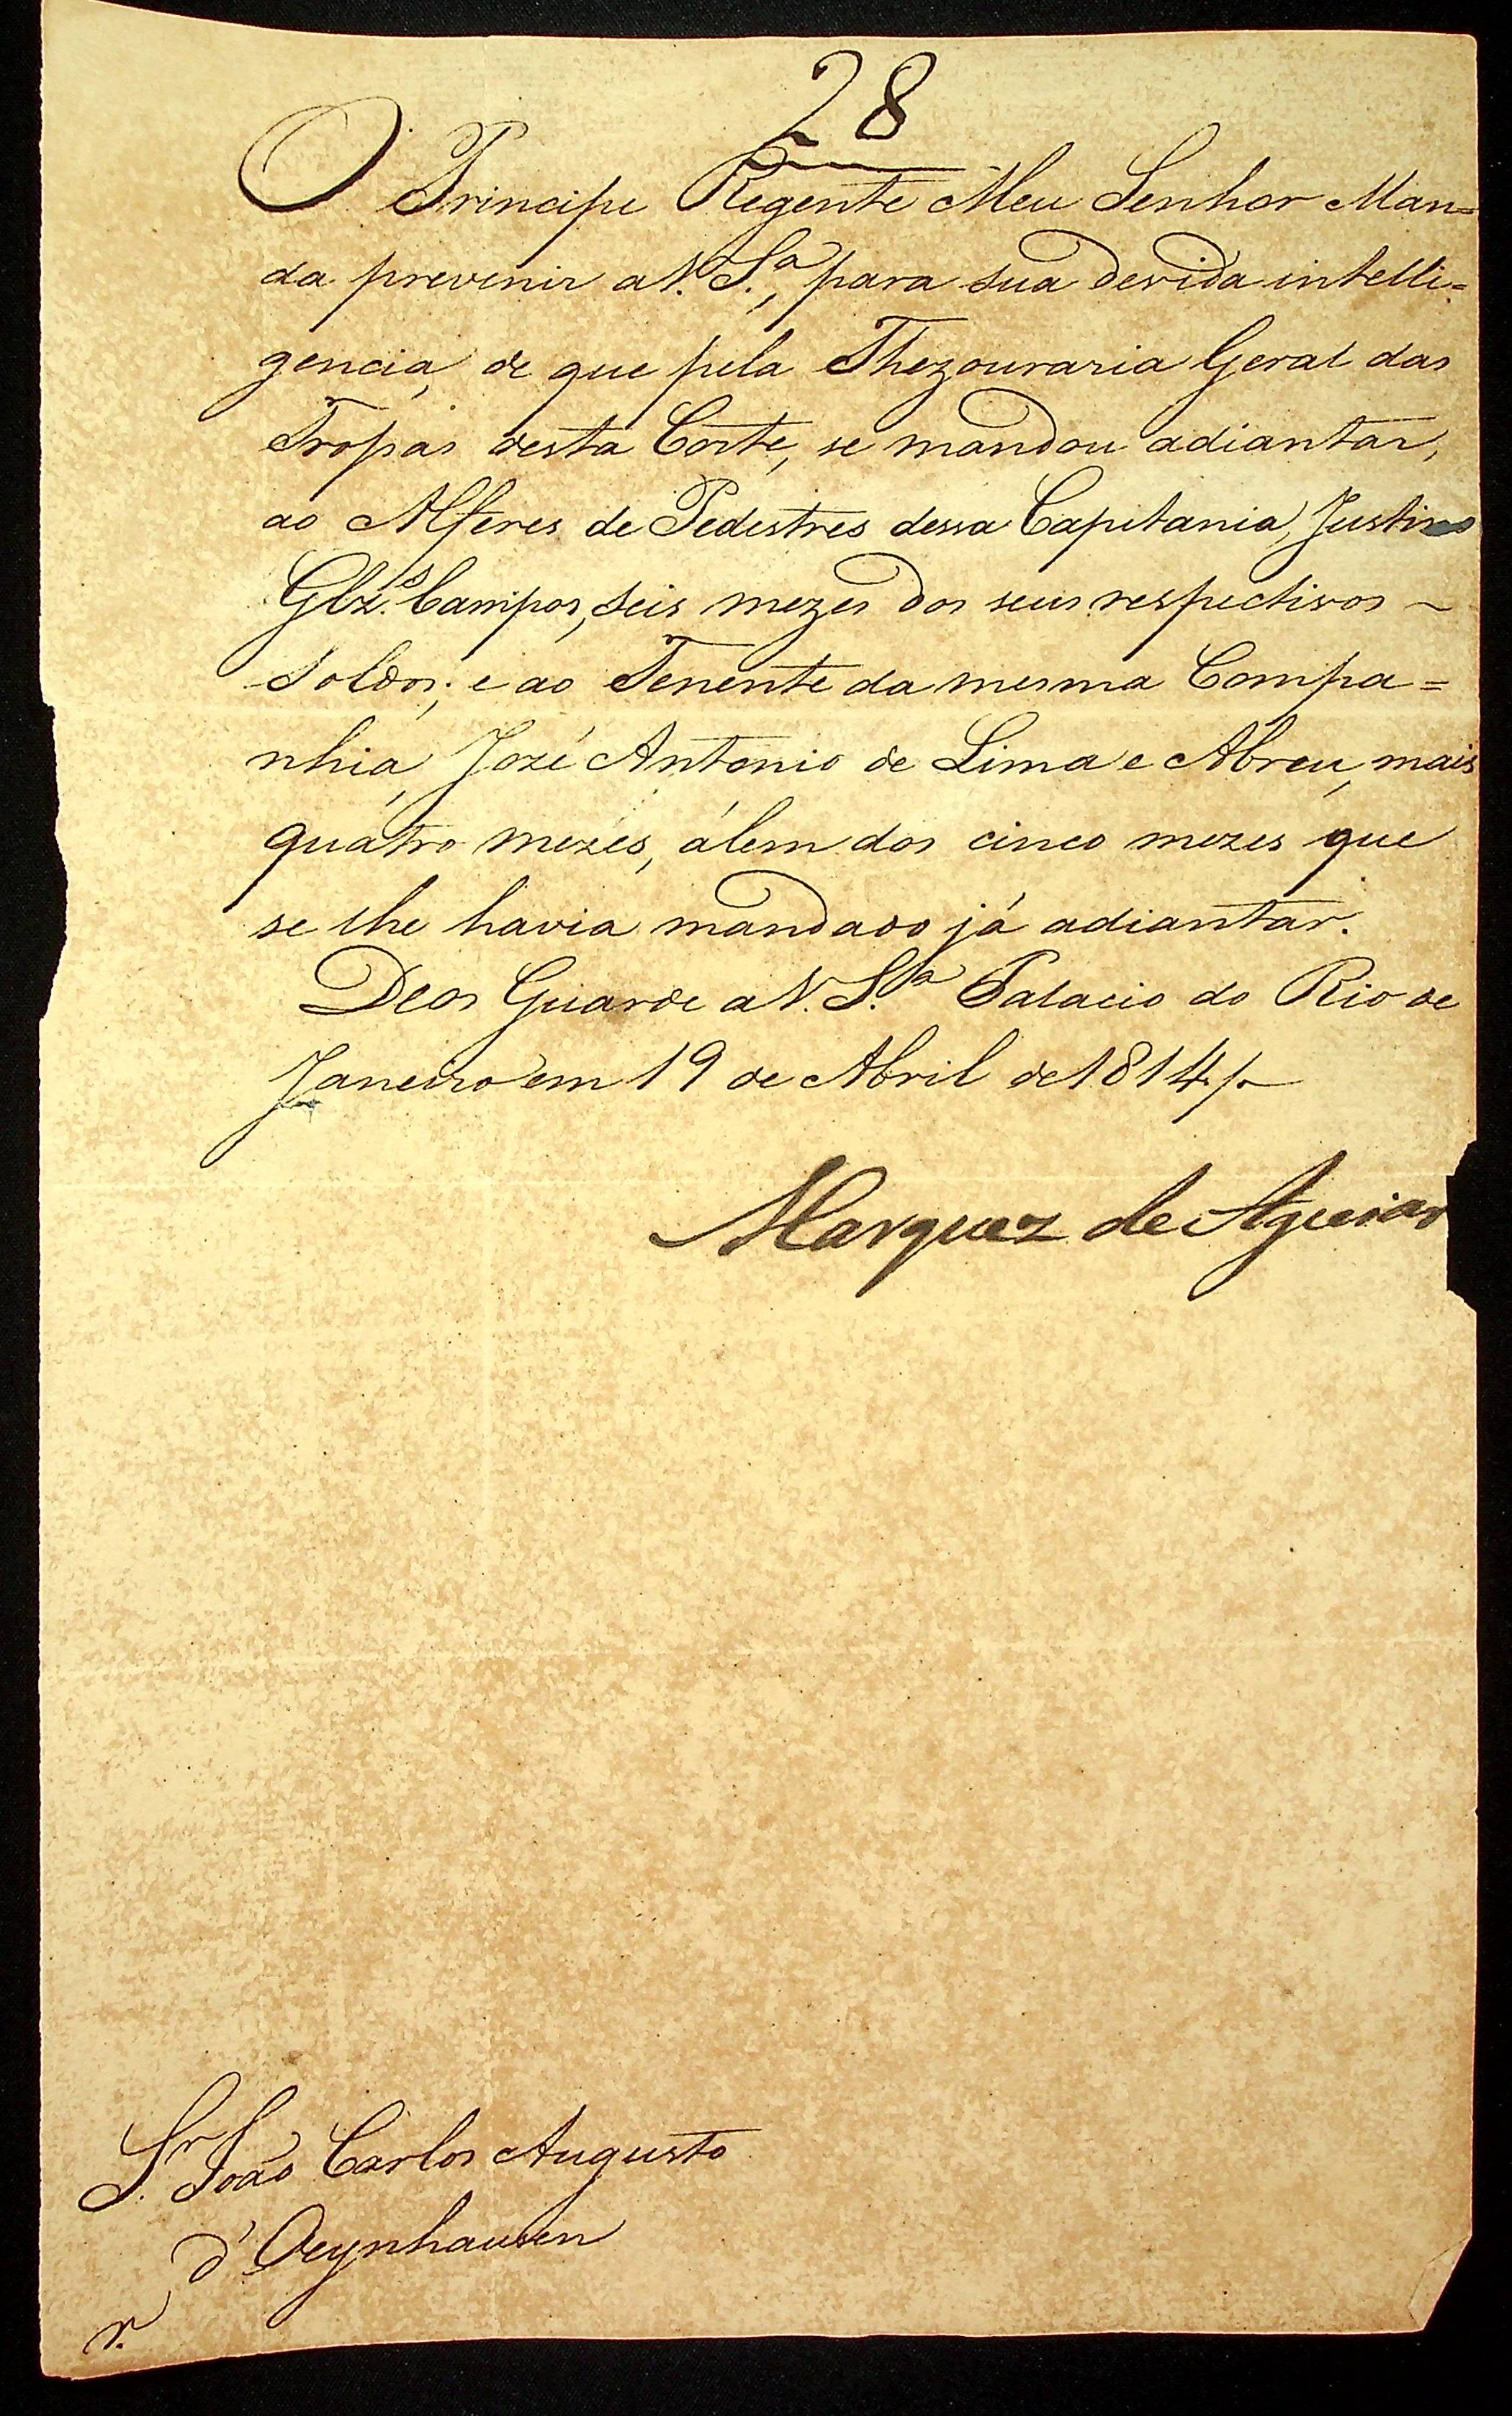 28
O Principe Regente Meu Senhor Man=
da prevenir a V. S.ª, para sua devida intelli=
gencia, de que pela Thezouraria Geral das
Tropas desta Corte, se mandou adiantar,
ao Alferes de Pedestres dessa Capitania, Justino
Glz.s Campos, seis mezes dos seus respectivos ~
Soldos; e ao Tenente da mesma Compa=
nhia, Jozé Antonio de Lima e Abreu, mais
quatro mezes, álem dos cinco mezes que
se lhe havia mandado já adiantar.
Deos Guarde a V. S.ª Palacio do Rio de
Janeiro em 19 de Abril de 1814
Marquez de Aguiar
S.r João Carlos Augusto
d'Oeynhausen
r.